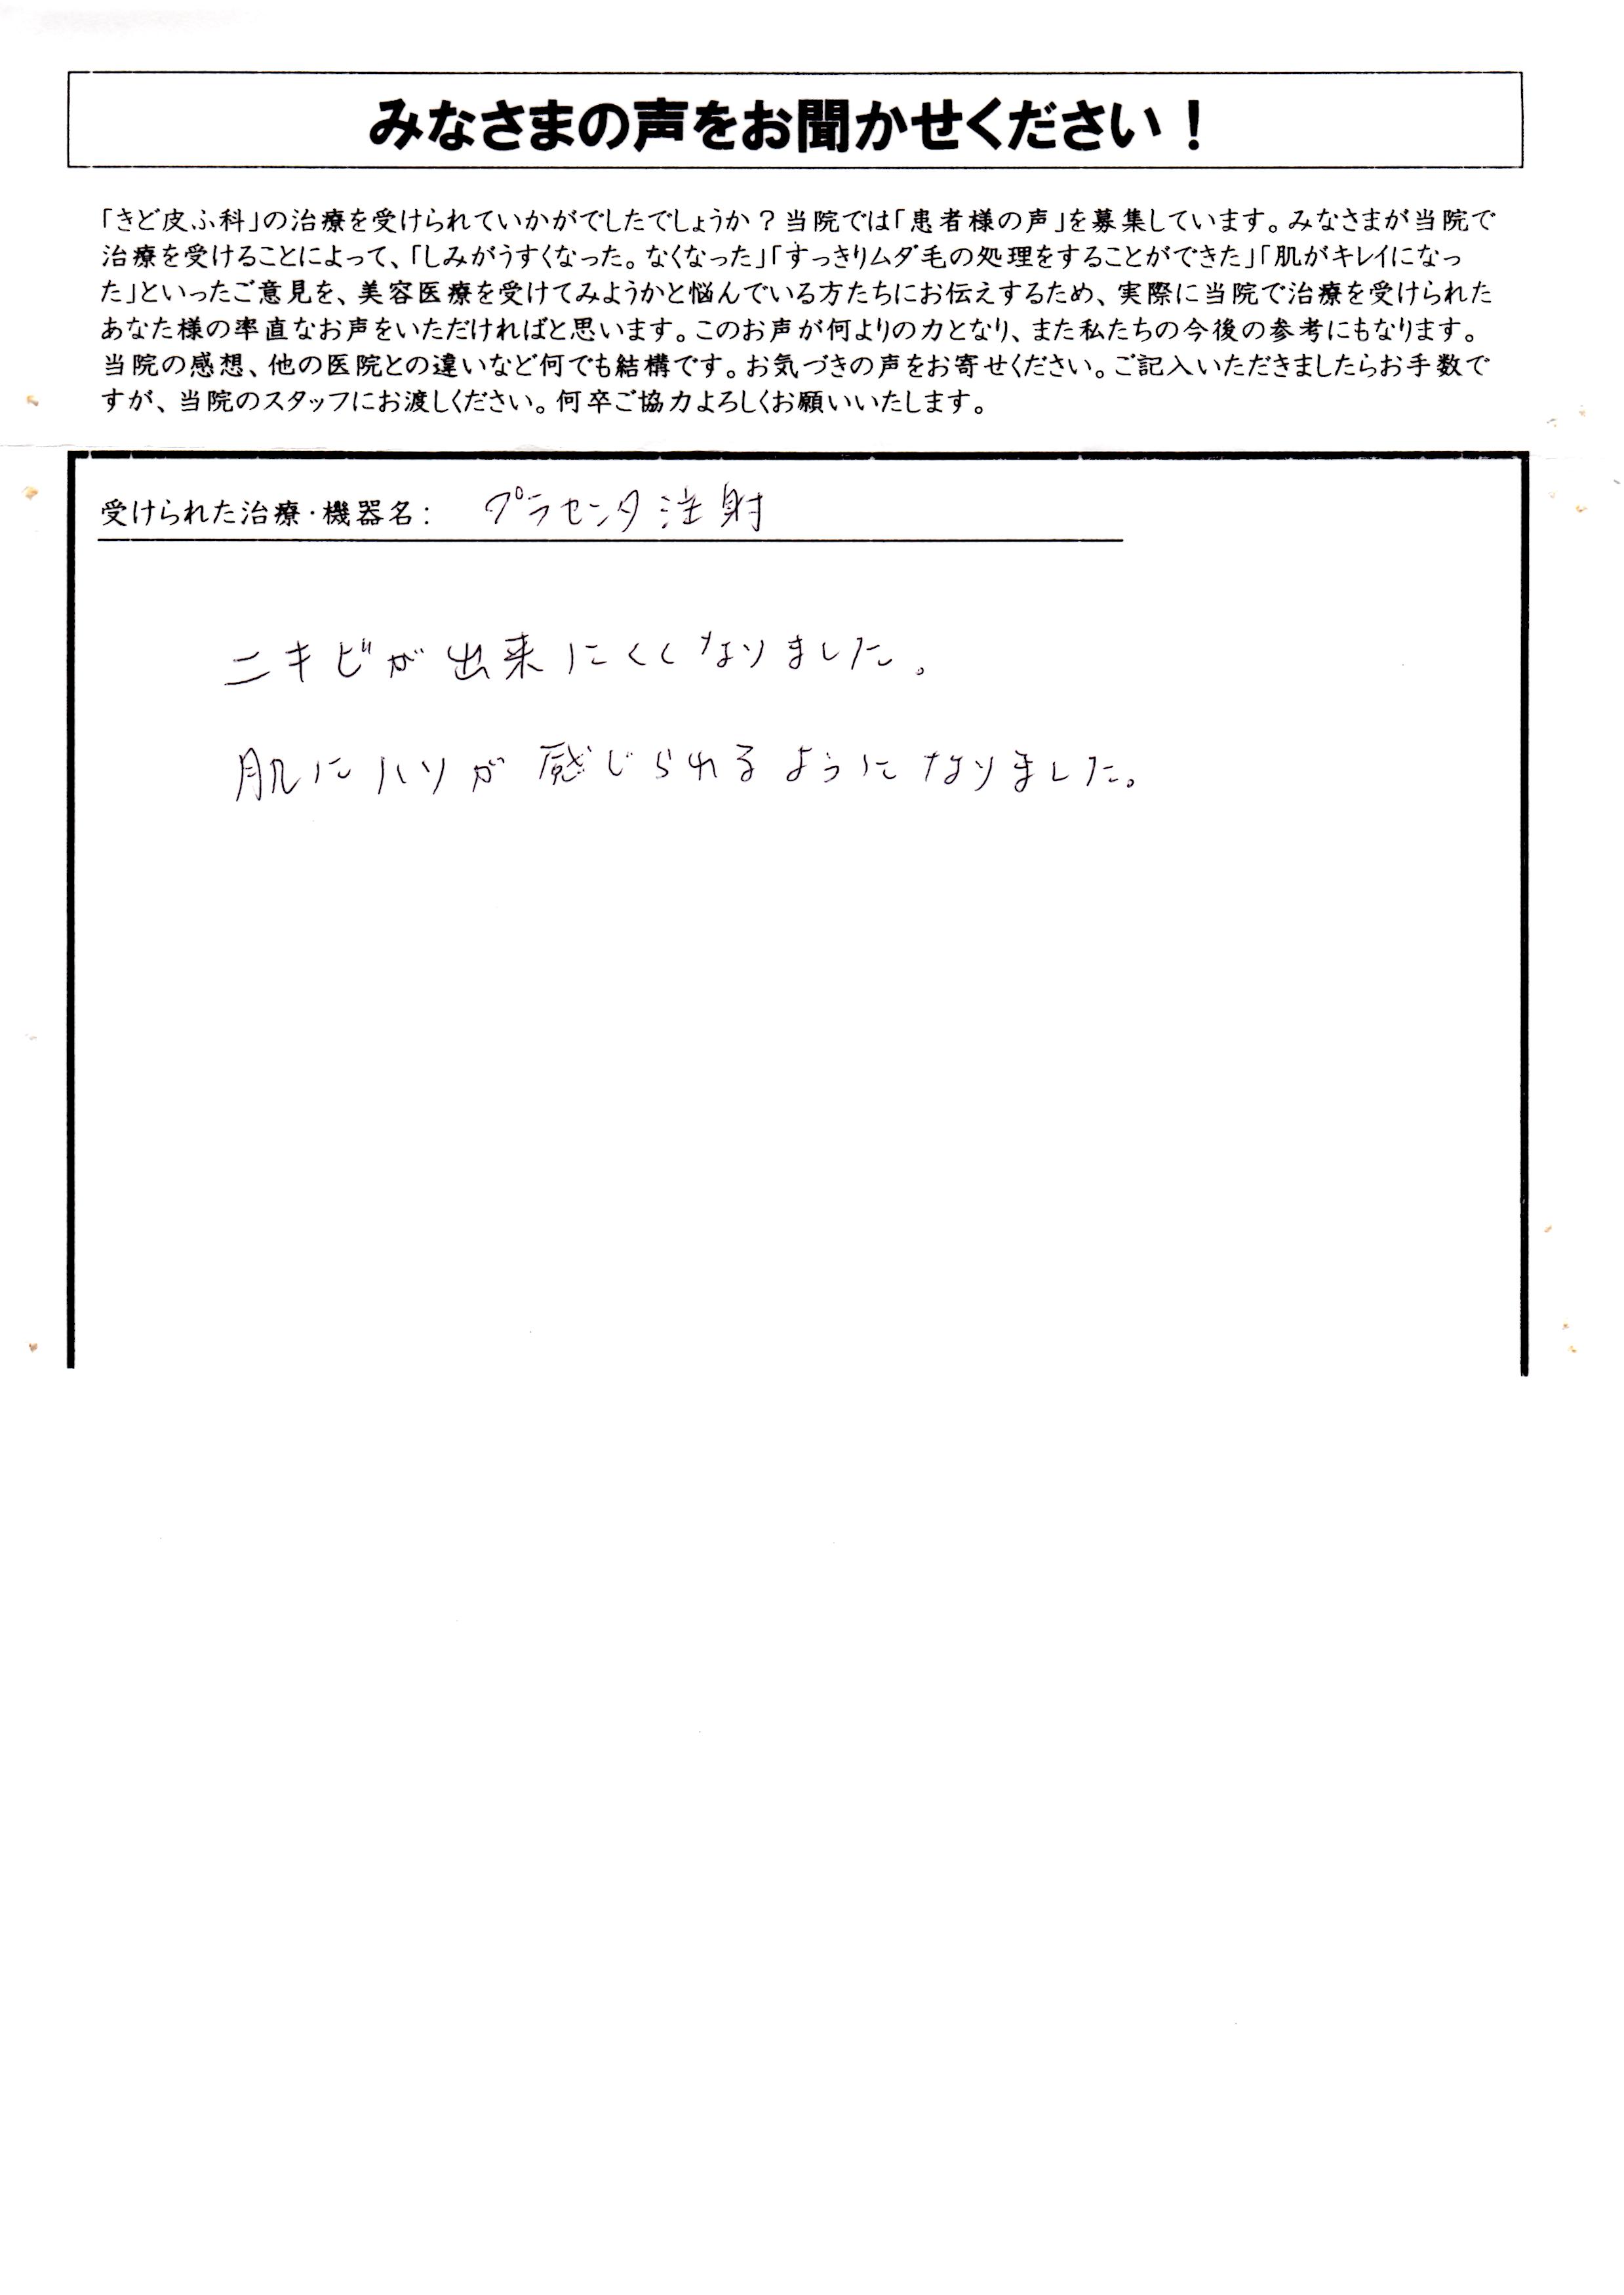 みなさまの声をお聞かせください！
「きど皮ふ科」の治療を受けられていかがでしたでしょうか？当院では「患者様の声」を募集しています。みなさまが当院で
治療を受けることによって、「しみがうすくなった。なくなった」「すっきりムダ毛の処理をすることができた」「肌がキレイになっ
た」といったご意見を、美容医療を受けてみようかと悩んでいる方たちにお伝えするため、実際に当院で治療を受けられた
あなた様の率直なお声をいただければと思います。このお声が何よりの力となり、また私たちの今後の参考にもなります。
当院の感想、他の医院との違いなど何でも結構です。お気づきの声をお寄せください。ご記入いただきましたらお手数で
すが、当院のスタッフにお渡しください。何卒ご協力よろしくお願いいたします。
受けられた治療・機器名： プラセンタ注射
ニキビが出来にくくなりました。
肌にハリが感じられるようになりました。